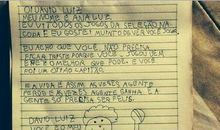 OI DAVID LUIZ
MEU NOME É ANA LUIZ
EU VI TODOS OS JOGOS DA SELEÇÃO NA
E EU GOSTEI MUNTO DE VER VOCÊ JOGAR
EU ACHO QUE VOCÊ NÃO PRECISA
FICAR TRISTE PORQUE VOCÊ JOGOU BEM
O MELHOR QUE PODE E VOCÊ
FOI UM OTIMO CAPITÃO
A VIDA É ASSIM AS VEZES AGENTE
PERDE E AS VEZES AGENTE GANHA E A
GENTE SO PRECISA SER FELIS
DAVID LUIZ
VOCÊ